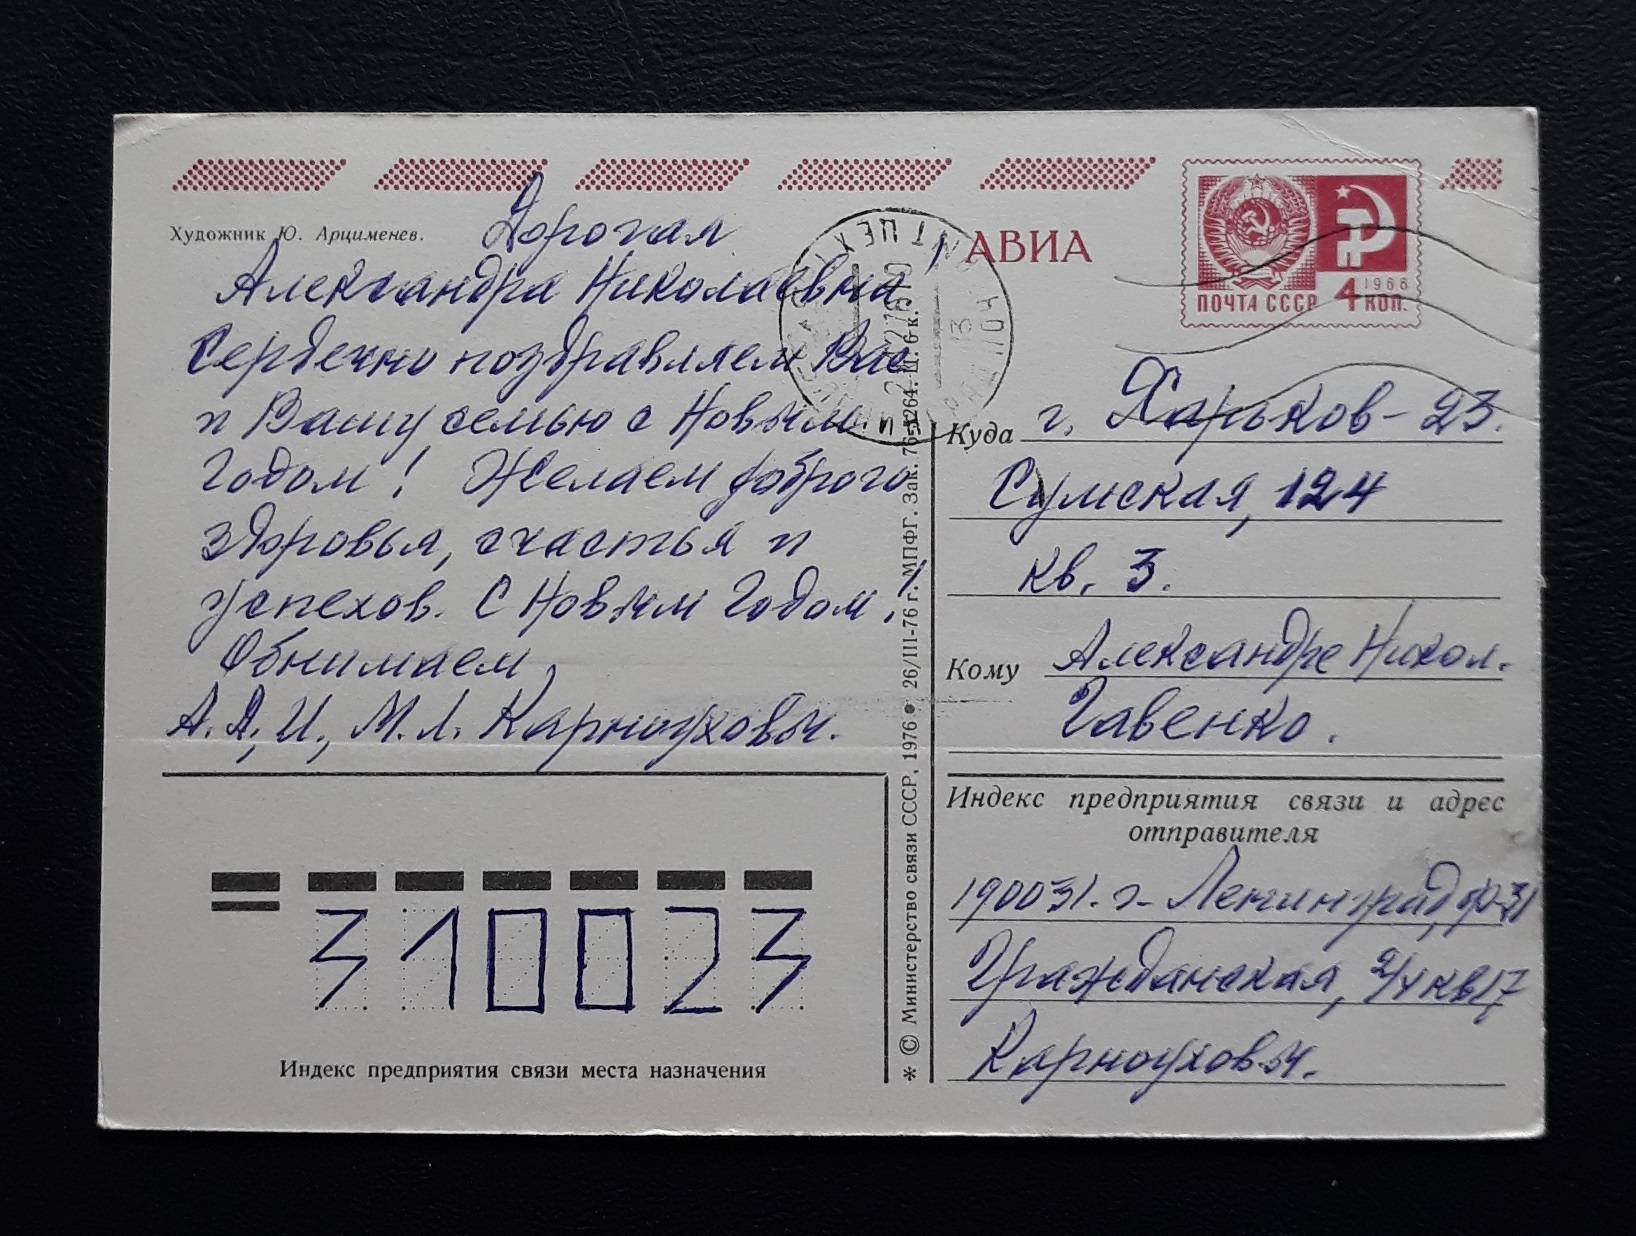 Художник Ю. Арцименев.
Дорогая
Александра Николаевна!
Сердечно поздравляем Вас
и Вашу семью с Новым
Годом! Желаем доброго
здоровья, счастья и
успехов. С Новым Годом!
Обнимаем,
А.Д., И., М.Л. Карноуховы.
Индекс предприятия связи места назначения
310023
* © Министерство связи СССР, 1976 ● 26/III-76 г. МПФГ. Зак. 76-1264. Ц. 6 к.
АВИА
ПОЧТА СССР 4 КОП.
1966
Куда г. Харьков-23.
Сумская, 124
кв. 3.
Кому Александре Никол.
Гавенко.
Индекс предприятия связи и адрес
отправителя
190031. г. Ленинград, ф-31
Гражданская, кв 17
Карноуховы.